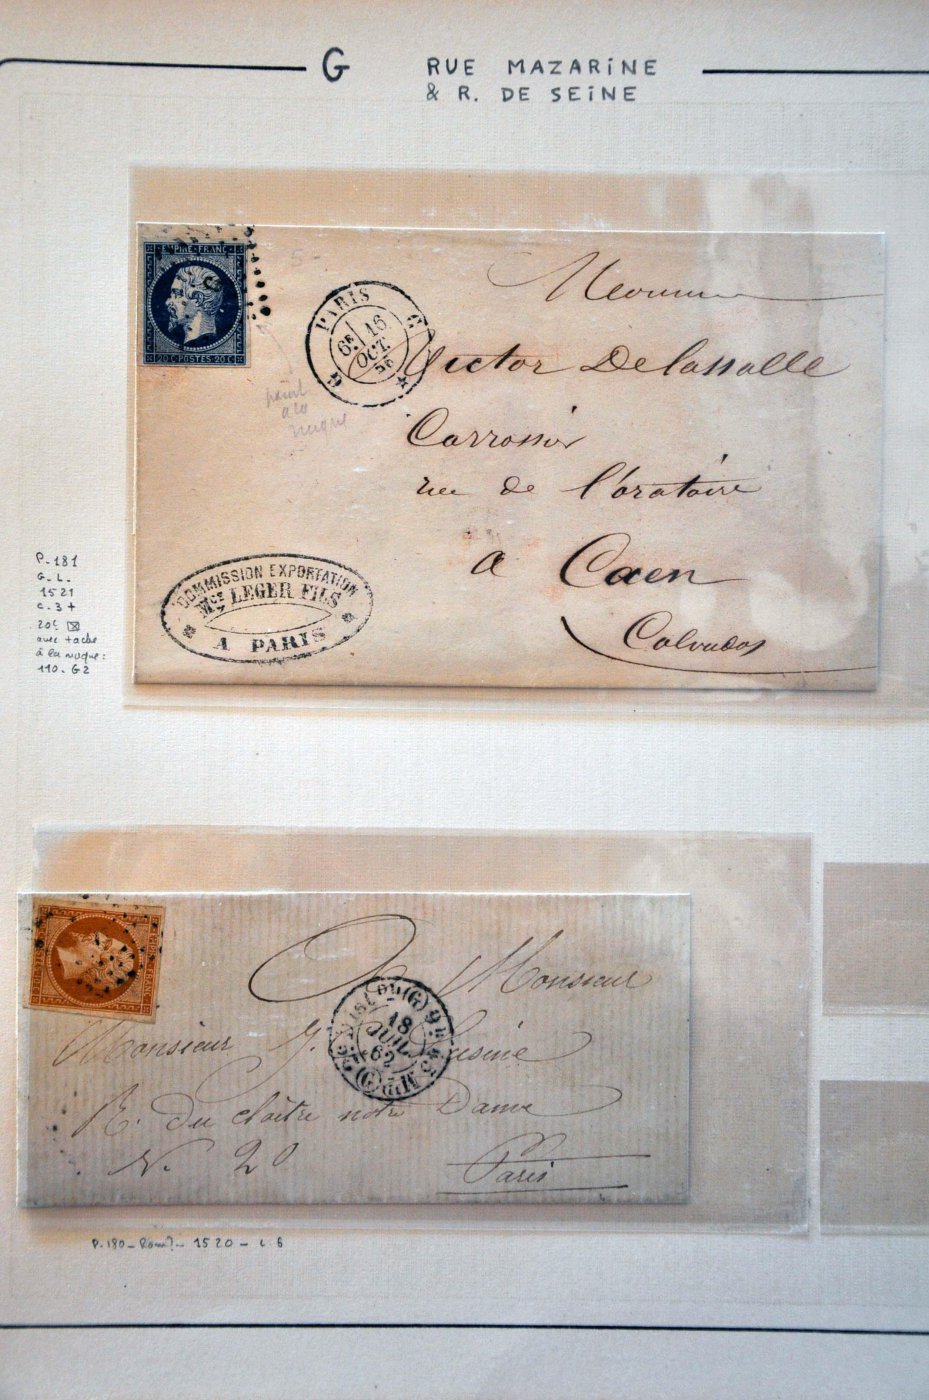 G
RUE MAZARINE
& R. DE SEINE
EMPIRE FRANC
20 C POSTES 20 C
PARIS G
6E 16
OCT.
56
G
point
a la
nuque
Monsieur
Victor Delassalle
Carrossier
rue de l'oratoire
a Caen
Calvados
COMMISSION EXPORTATION
LEGER FILS
A PARIS
P. 181
G. L.
1521
c. 3 +
20c
avec tache
à la nuque:
110. G2
Monsieur
(G)
18
JUIL.
62
(G)
Monsieur J.
R. du cloître notre Dame
N. 20
Paris
P. 180 - Rom? - 1520 - c. 6